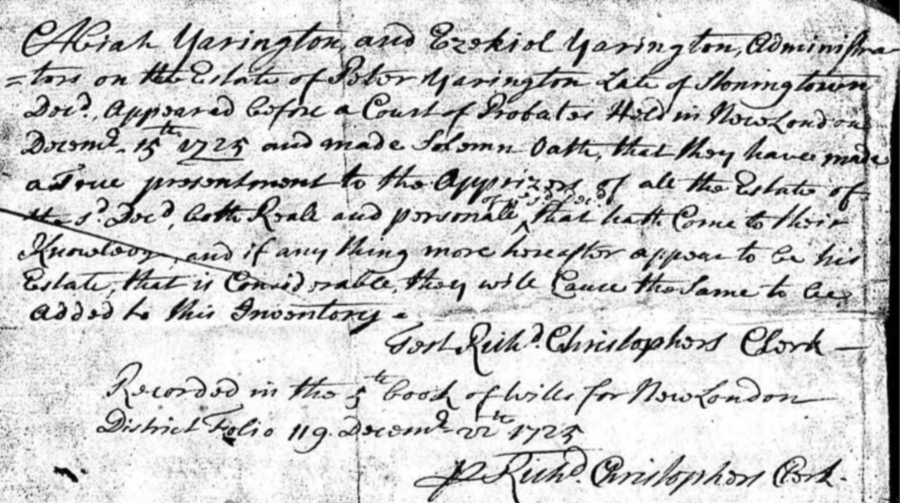 Abiah Yarington, and Ezekiel Yarington, Administra
=tors on the Estate of Peter Yarington Late of Stonington
Decd, Appeared before a Court of Probates Held in New London
Decembr 15th 1725 and made Solemn Oath, that they have made
a True presentment to the Apprizers of all the Estate of
the sd Decd, both Reale and personale, that hath Come to their
Knowledg, and if any thing more hereafter appear to be his
Estate, that is Considerable, they will Cause the Same to be
Added to this Inventory.
Test Richd. Christophers Clerk
Recorded in the 5th book of Wills for New London
District Folio 119. Decembr 22th 1725
pr Richd. Christophers Clerk.